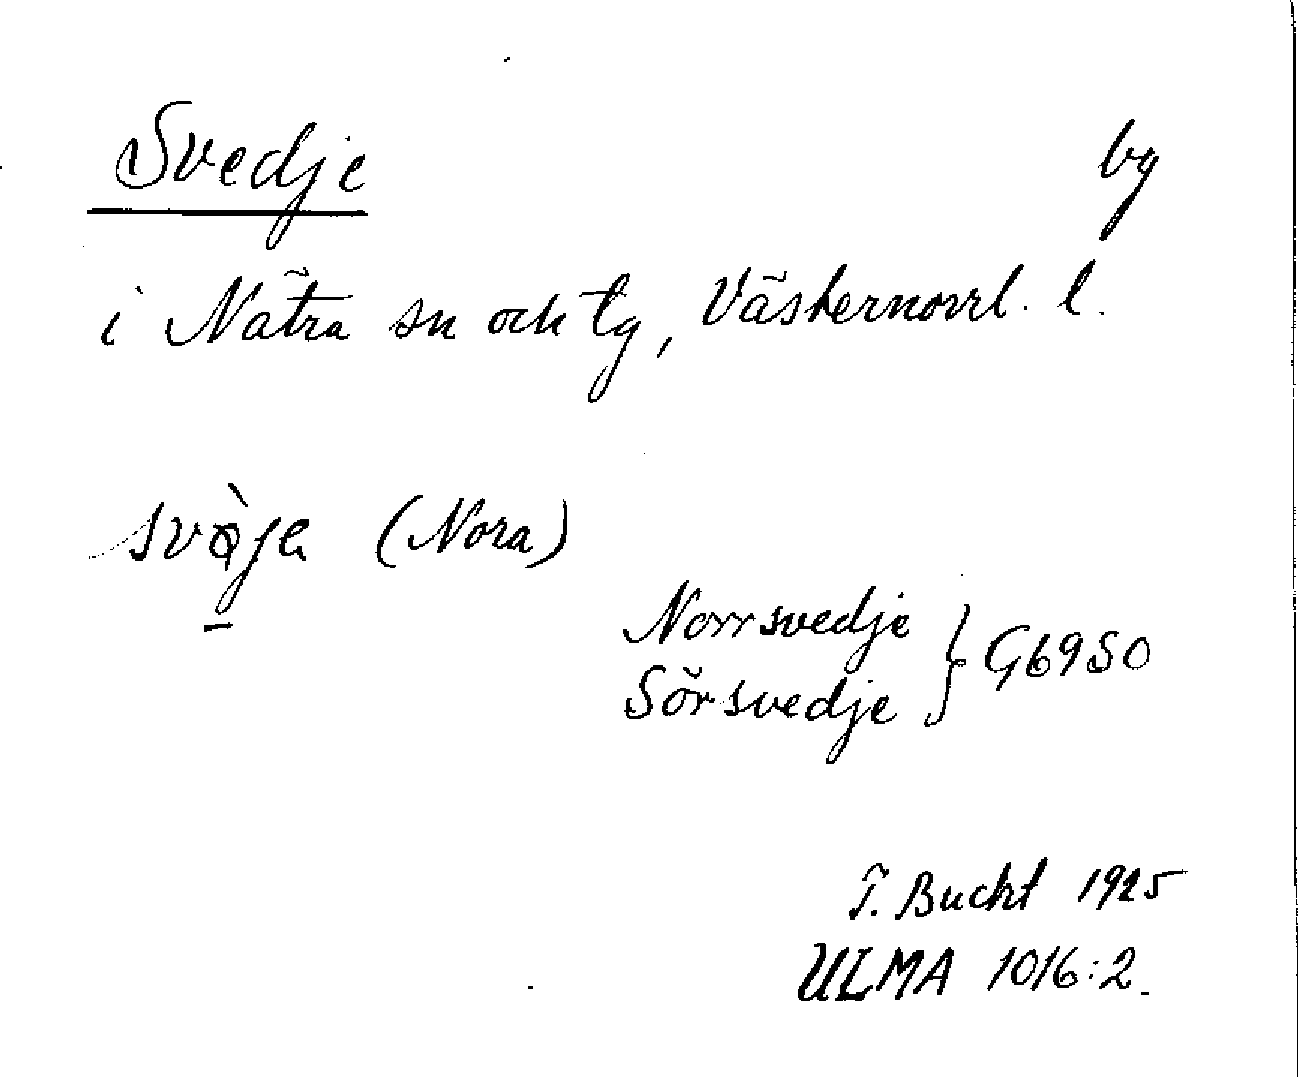 Svedje by
i Nätra sn och tg, Västernorrl. l.
(Nora)
Norrsvedje
Sörsvedje } G69SO
T. Bucht 1925
ULMA 1016:2.